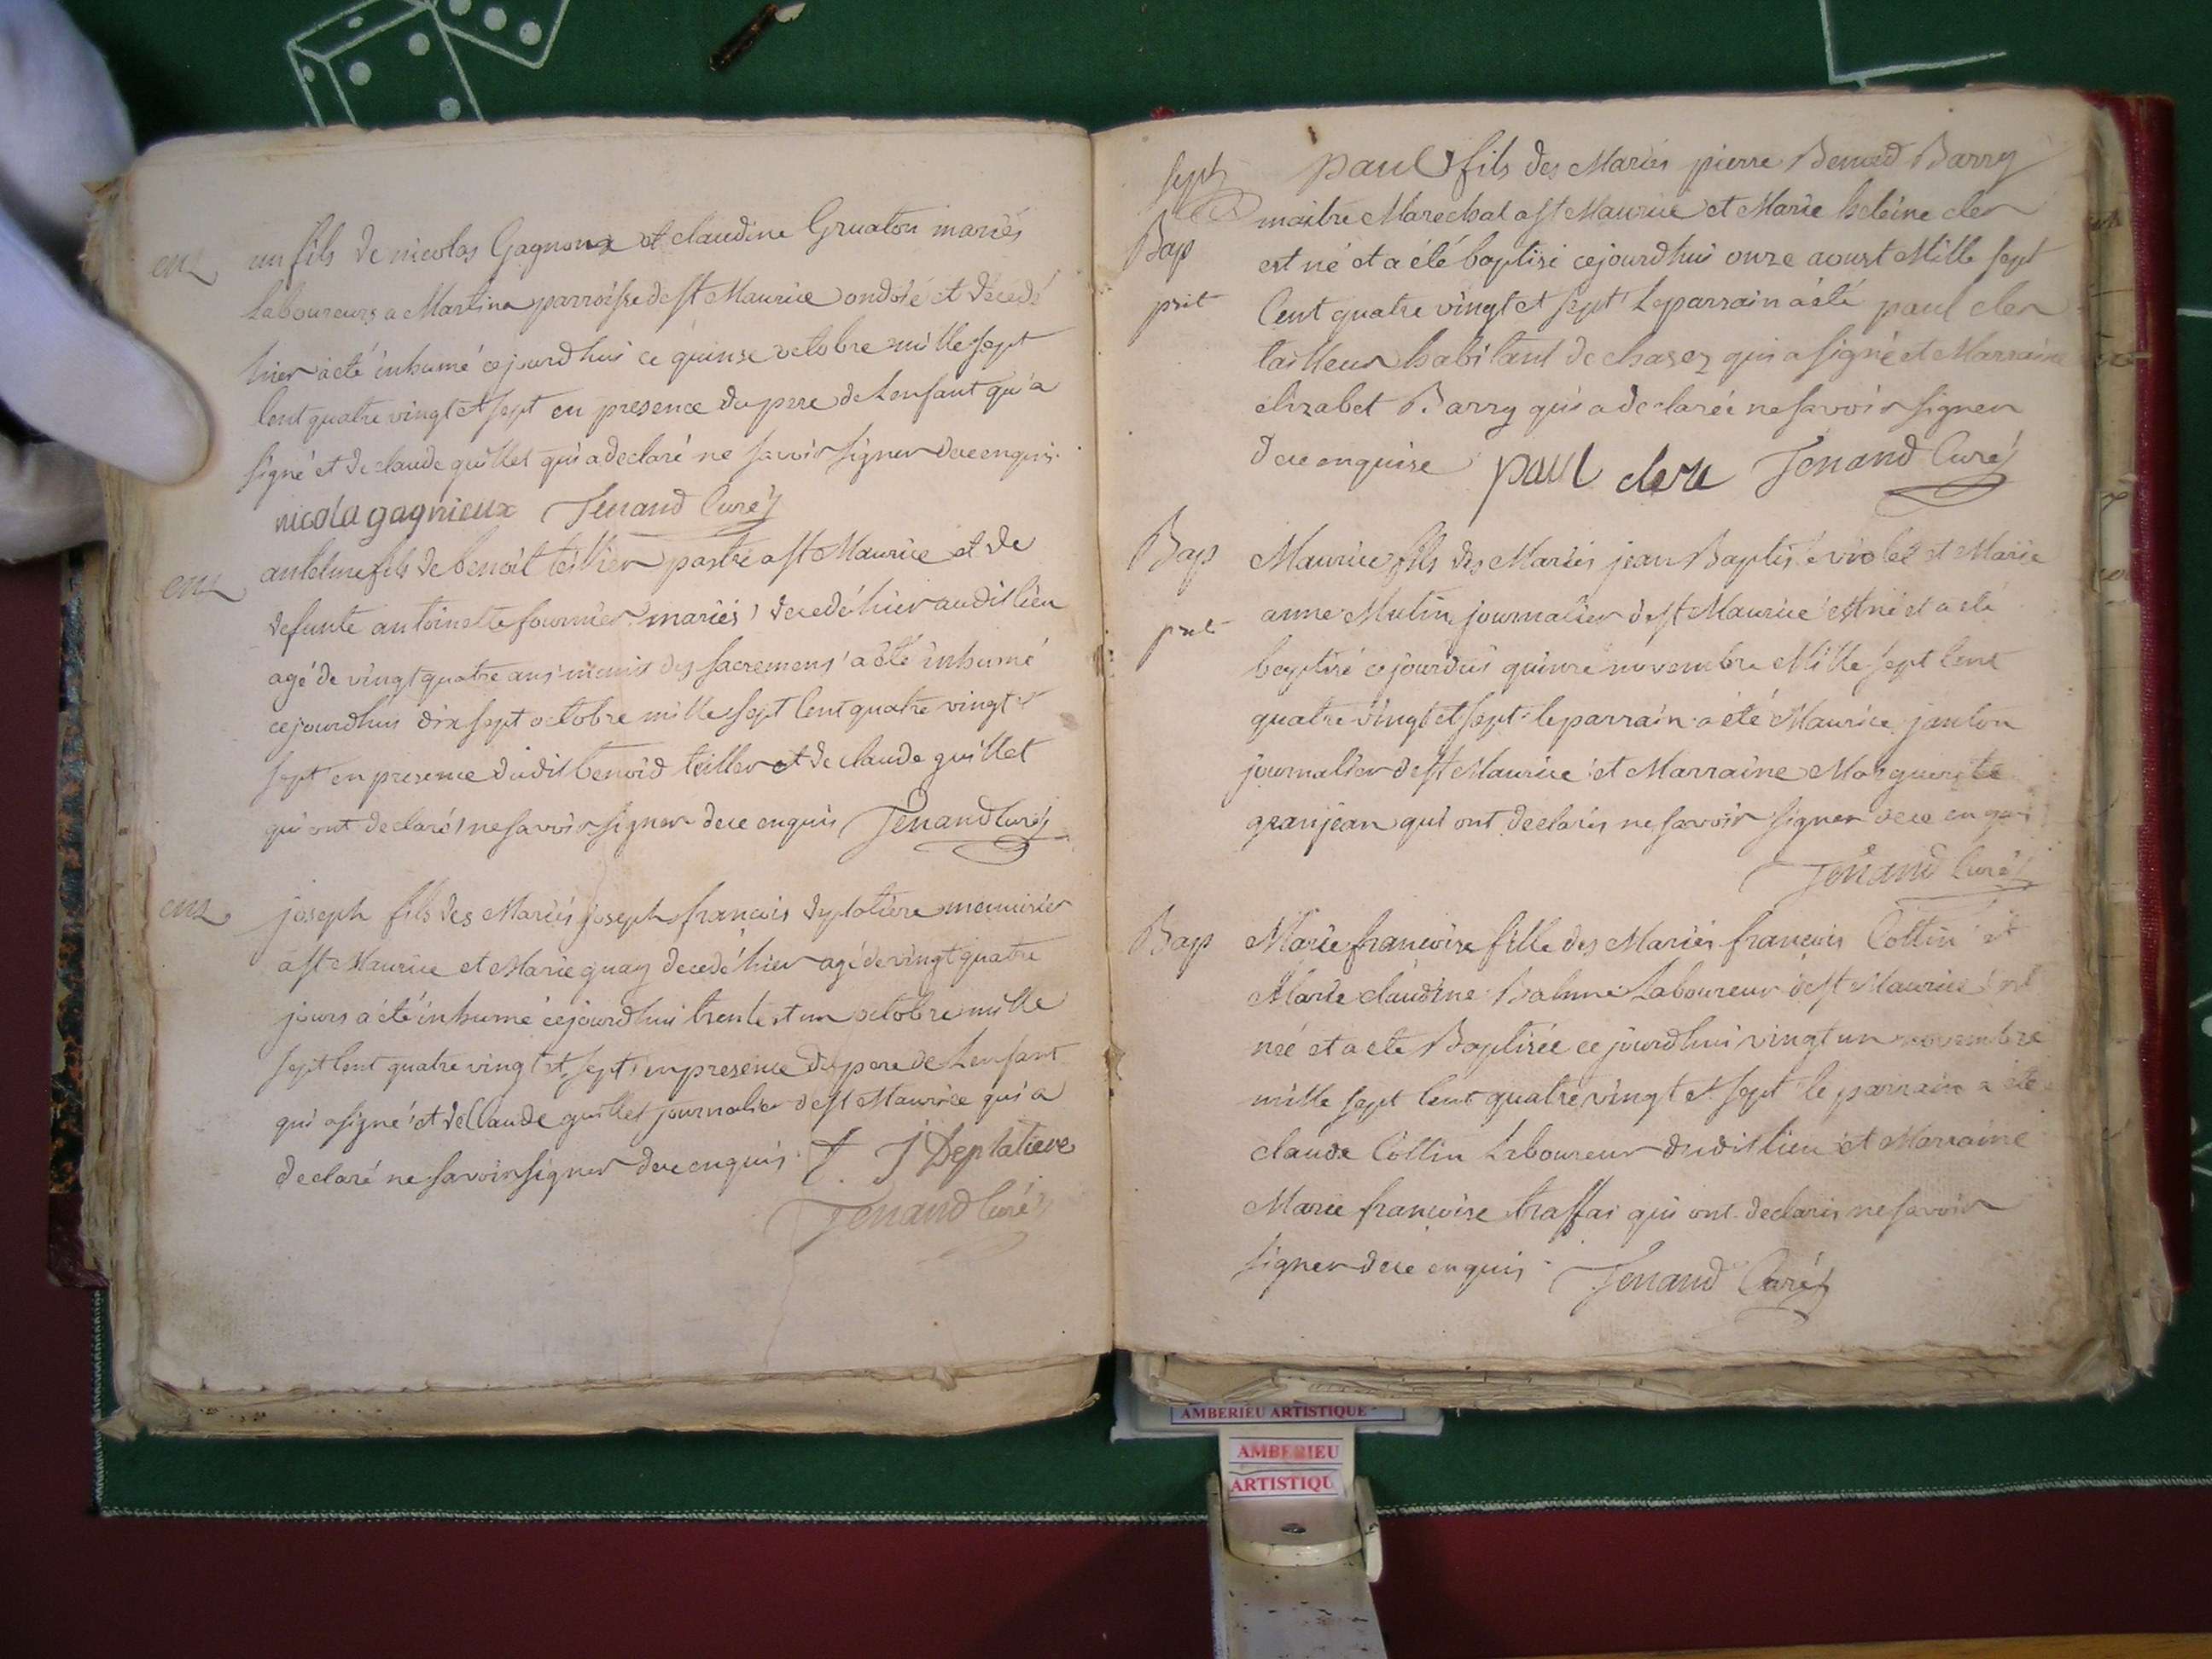 ent
un fils de nicolas Gagnoux et claudine Gruaton mariés
Laboureurs a Martina parroisse de st Maurice ondoié et decedé
hier a eté inhumé cejourdhui ce quinse octobre mille sept
Cent quatre vingt et sept en presence du pere de Lenfant qui a
signé et de claude guillet qui a declaré ne savoir signer de ce enquis.
nicola gagnieux Tenand Curé
ent
antelme fils de benoit teillier pastre a st Maurice et de
defunte antoinette fournier mariés decedé hier audit lieu
agé de vingt quatre ans munit des sacremens a eté inhumé
cejourdhui dix sept octobre mille sept Cent quatre vingt et
sept en presence dudit benoid teiller et de claude guillet
qui ont declaré ne savoir signer de ce enquis Tenand Curé
ent
joseph fils des Mariés joseph françois menuisier
a st Maurice et Marie guay decedé hier agé de vingt quatre
jours a été inhumé cejourdhui trente et un octobre mille
sept Cent quatre vingt et sept en presence du pere de Lenfant
qui a signé et de Claude guillet journalier de st Maurice qui a
declaré ne savoir signer de ce enquis. J Deplatieve
Tenand Curé
sept
Bap
prit
paul fils des Mariés pierre Benoid Barry
maitre Marechal a st Maurice et Marie heleine cler
est né et a été baptisé cejourdhui onze aoust Mille sept
Cent quatre vingt et sept Le parrain a été paul cler
tailleur habitant de chasey qui a signé et Marraine
elizabet Barry qui a declarée ne savoir signer
de ce enquise paul clere Tenand Curé
Bap
prit
Maurice fils des Mariés jean Baptiste violet et Marie
anne Mutin journalier de st Maurice est né et a eté
baptisé cejourdui quinze novembre Mille sept Cent
quatre vingt et sept le parrain a été Maurice janton
journalier de st Maurice et Marraine Marguerite
granjean qui ont declarés ne savoir signer de ce enquis
Tenand Curé
Bap
Marie françoise fille des Mariés françois Collin et
Marie claudine Balme Laboureur de st Maurice est
née et a eté Baptisée ce jourdhui vingt un novembre
mille sept Cent quatre vingt et sept le parrain a eté
claude Collin Laboureur dudit lieu et Marraine
Marie françoise traffai qui ont declarés ne savoir
signer de ce enquis Tenand Curé
AMBERIEU ARTISTIQUE
AMBERIEU
ARTISTIQU